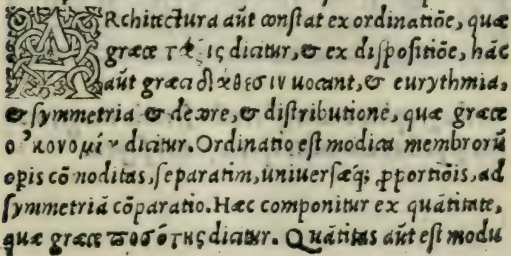 ARchitectura aūt constat ex ordinatiōe, quæ
græce τάξις dicitur, & ex dispositiōe, hāc
aūt græci διάθεσιν uocant, & eurythmia,
& symmetria & decore, & distributione, quæ græce
οἰκονομία dicitur. Ordinatio est modica membrorū
opis cōmoditas, separatim, uniuersæq; ꝓportiōis, ad
symmetriā cōparatio. Hæc componitur ex quātitate,
quæ græce ποσότης dicitur. Quātitas aūt est modu